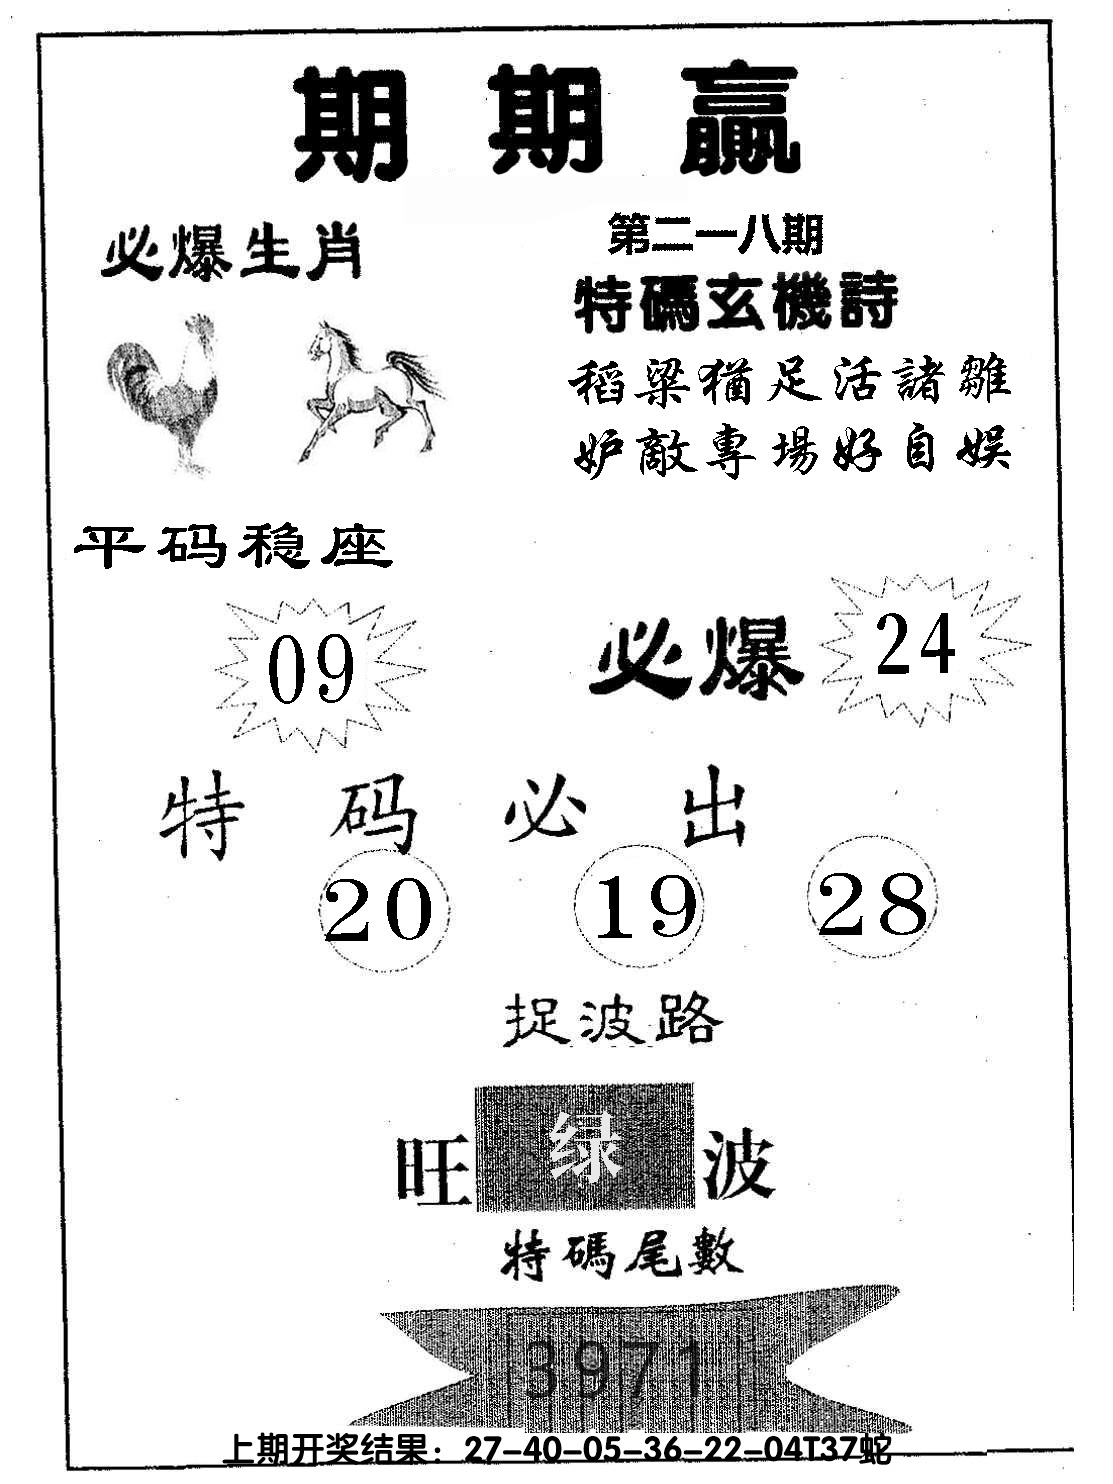 期期赢
第二一八期
必爆生肖
特碼玄機詩
稻粱猶足活諸雛
妒敵專場好自娱
平码稳座
09
必爆
24
特码必出
20 19 28
捉波路
旺绿波
特碼尾數
3971
上期开奖结果：27-40-05-36-22-04T37蛇